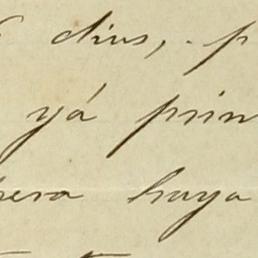 dias, p
yá prin
pera haya